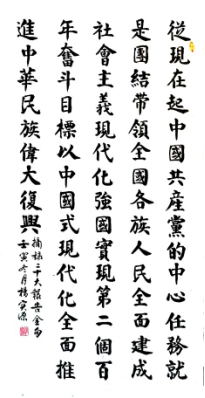 從現在起中國共産黨的中心任務就
是團結帶領全國各族人民全面建成
社會主義現代化強國實現第二個百
年奮斗目標以中國式現代化全面推
進中華民族偉大復興
摘錄二十大報告金句
壬寅冬月楊